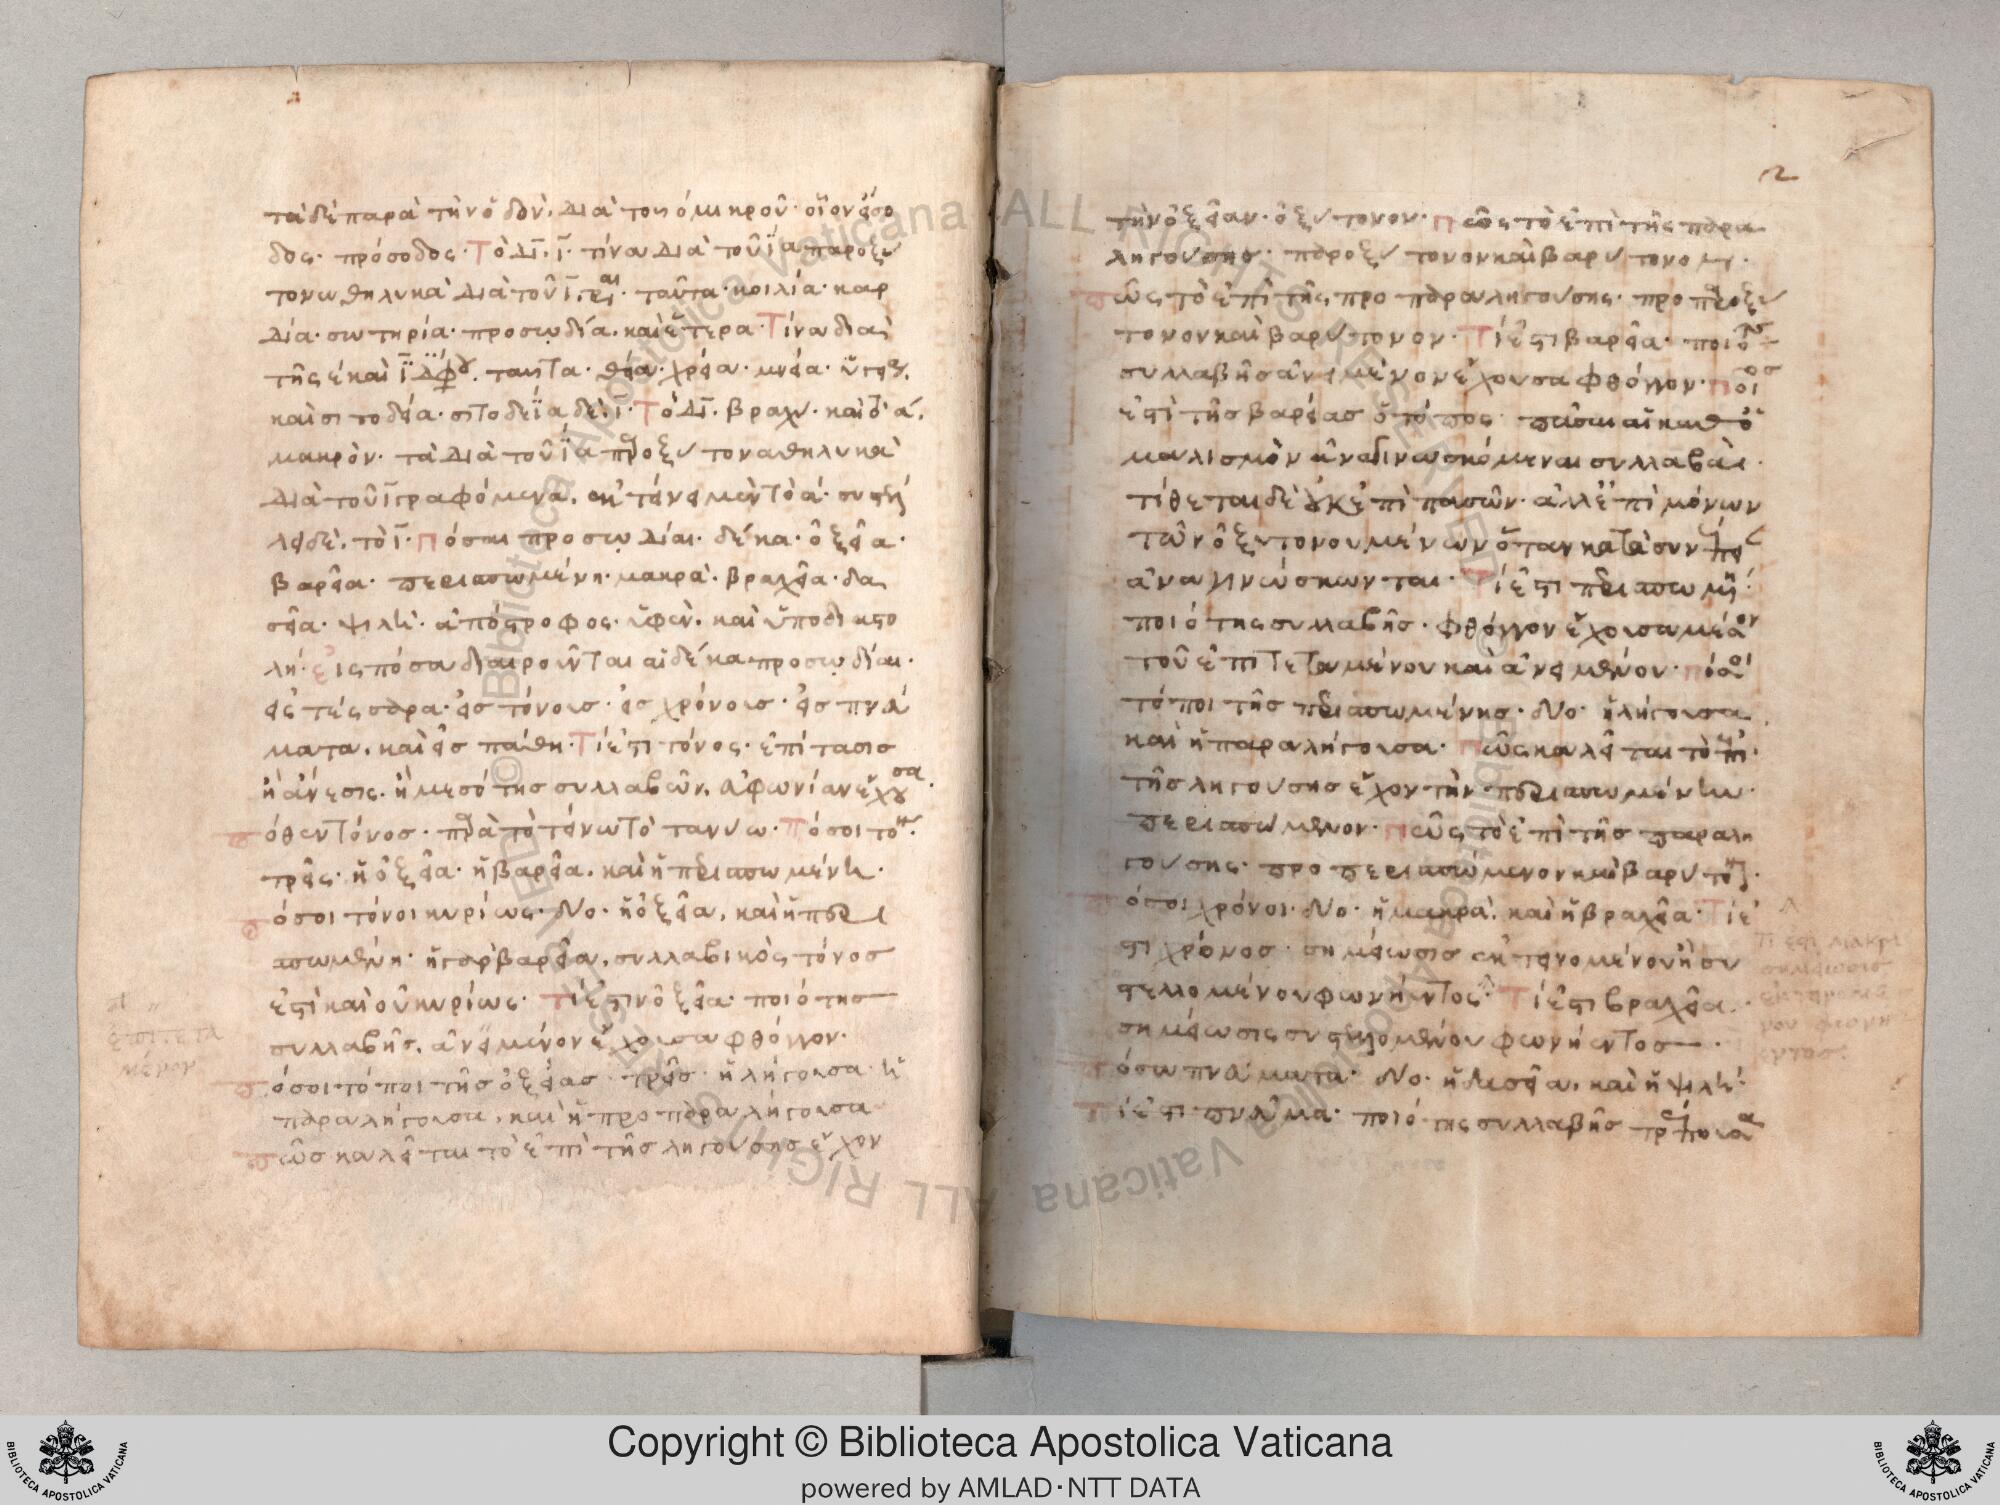 τὰ δὲ παρὰ τὴν ὁδὸν, διὰ τοῦ ο μικροῦ· οἷον εἴσο
δος· πρόσοδος· Τὸ δι. ϊ. τίνα διὰ τοῦ ΐα παροξύ
τονω θηλυκὰ διὰ τοῦ ϊ, ταῦτα· κοιλία· καρ
δία· σωτηρία· προσῳδία. καὶ ἕτερα· Τίνα διὰ
τῆς έ καὶ ϊ ταῦτα· θέα· χρεία· μνεία·
καὶ σιτοδεία· σιτοδεΐα δὲ, ϊ· Τὸ δι. βραχυ· καὶ τὸ ά.
μακρόν· τὰ διὰ τοῦ ΐα παροξύτονα θηλυκὰ
διὰ τοῦ ϊ γραφόμενα, ἐκτείνει μὲν τὸ ά· συστέλ
λει δὲ, τὸ ϊ· Πόσαι προσῳδίαι· δέκα· ὀξεῖα·
βαρεῖα· περισπωμένη· μακρά· βραχεῖα· δα
σεῖα· ψιλή· ἀπόστροφος· ὑφέν· καὶ ὑποδιαστο
λή· εἰς πόσα διαιροῦνται αἱ δέκα προσῳδίαι·
εἰς τέσσαρα· εἰς τόνους· εἰς χρόνους· εἰς πνεύ
ματα, καὶ εἰς πάθη· Τί ἐστι τόνος· ἐπίτασις
ἢ ἄνεσις, ἢ μεσότης συλλαβῶν, εὐφωνίαν ἔχουσα·
πόθεν τόνος· παρὰ τὸ τείνω τὸ τανύω· Πόσοι τό
τρεῖς· ἡ ὀξεῖα· ἡ βαρεῖα, καὶ ἡ περισπωμένη·
πόσοι τόνοι κυρίως· δύο· ἡ ὀξεῖα, καὶ ἡ περι
σπωμένη· ἡ γὰρ βαρεῖα, συλλαβικὸς τόνος
ἐστὶ καὶ οὐ κυρίως· τί ἐστιν ὀξεῖα· ποιότης
συλλαβῆς, ἀνειμένον ἔχουσα φθόγγον·
πόσοι τόποι τῆς ὀξείας· τρεῖς· ἡ λήγουσα· ἡ
παραλήγουσα, καὶ ἡ προπαραλήγουσα
πῶς καλεῖται τὸ ἐπὶ τῆς ληγούσης ἔχον
τὴν ὀξεῖαν· ὀξύτονον· Πῶς τὸ ἐπὶ τῆς παρα
ληγούσης· παροξύτονον καὶ βαρύτονον·
πῶς τὸ ἐπὶ τῆς προπαραληγούσης· προπαροξύ
τονον καὶ βαρύτονον· Τί ἐστι βαρεῖα· ποιότης
συλλαβῆς ἀνειμένον ἔχουσα φθόγγον· Ποῖος
ἐστὶ τῆς βαρείας ὁ τόπος· πᾶσαι αἱ καθ' ὁ
μαλισμὸν ἀναγινωσκόμεναι συλλαβαί·
τίθεται δὲ οὐκ ἐπὶ πασῶν· ἀλλ' ἐπὶ μόνων
τῶν ὀξυτονουμένων ὅταν κατὰ συνέπει
ἀναγινώσκωνται· Τί ἐστι περισπωμένη·
ποιότης συλλαβῆς· φθόγγον ἔχουσα μέσον
τοῦ ἐπιτεταμένου καὶ ἀνειμένου· πόσοι
τόποι τῆς περισπωμένης· δύο· ἡ λήγουσα
καὶ ἡ παραλήγουσα· Πῶς καλεῖται τὸ ἐπὶ
τῆς ληγούσης ἔχον τὴν περισπωμένην·
περισπώμενον· Πῶς τὸ ἐπὶ τῆς παραλη
γούσης· προπερισπώμενον καὶ βαρύτονον·
πόσοι χρόνοι· δύο· ἡ μακρά, καὶ ἡ βραχεῖα· Τί ἐ
στι χρόνος· σημείωσις ἐκτεινομένου ἢ συ
στελλομένου φωνήεντος· Τί ἐστι βραχεῖα·
σημείωσις συστελλομένου φωνήεντος·
πόσα πνεύματα· δύο· ἡ δασεῖα, καὶ ἡ ψιλή·
Τί ἐστι πνεῦμα· ποιότης συλλαβῆς
τί ἐστι μακρ
σημείωσις
ἐκτεινομέ
νου φωνή
εντος·
Copyright © Biblioteca Apostolica Vaticana
powered by AMLAD·NTT DATA
BIBLIOTECA APOSTOLICA VATICANA
BIBLIOTECA APOSTOLICA VATICANA